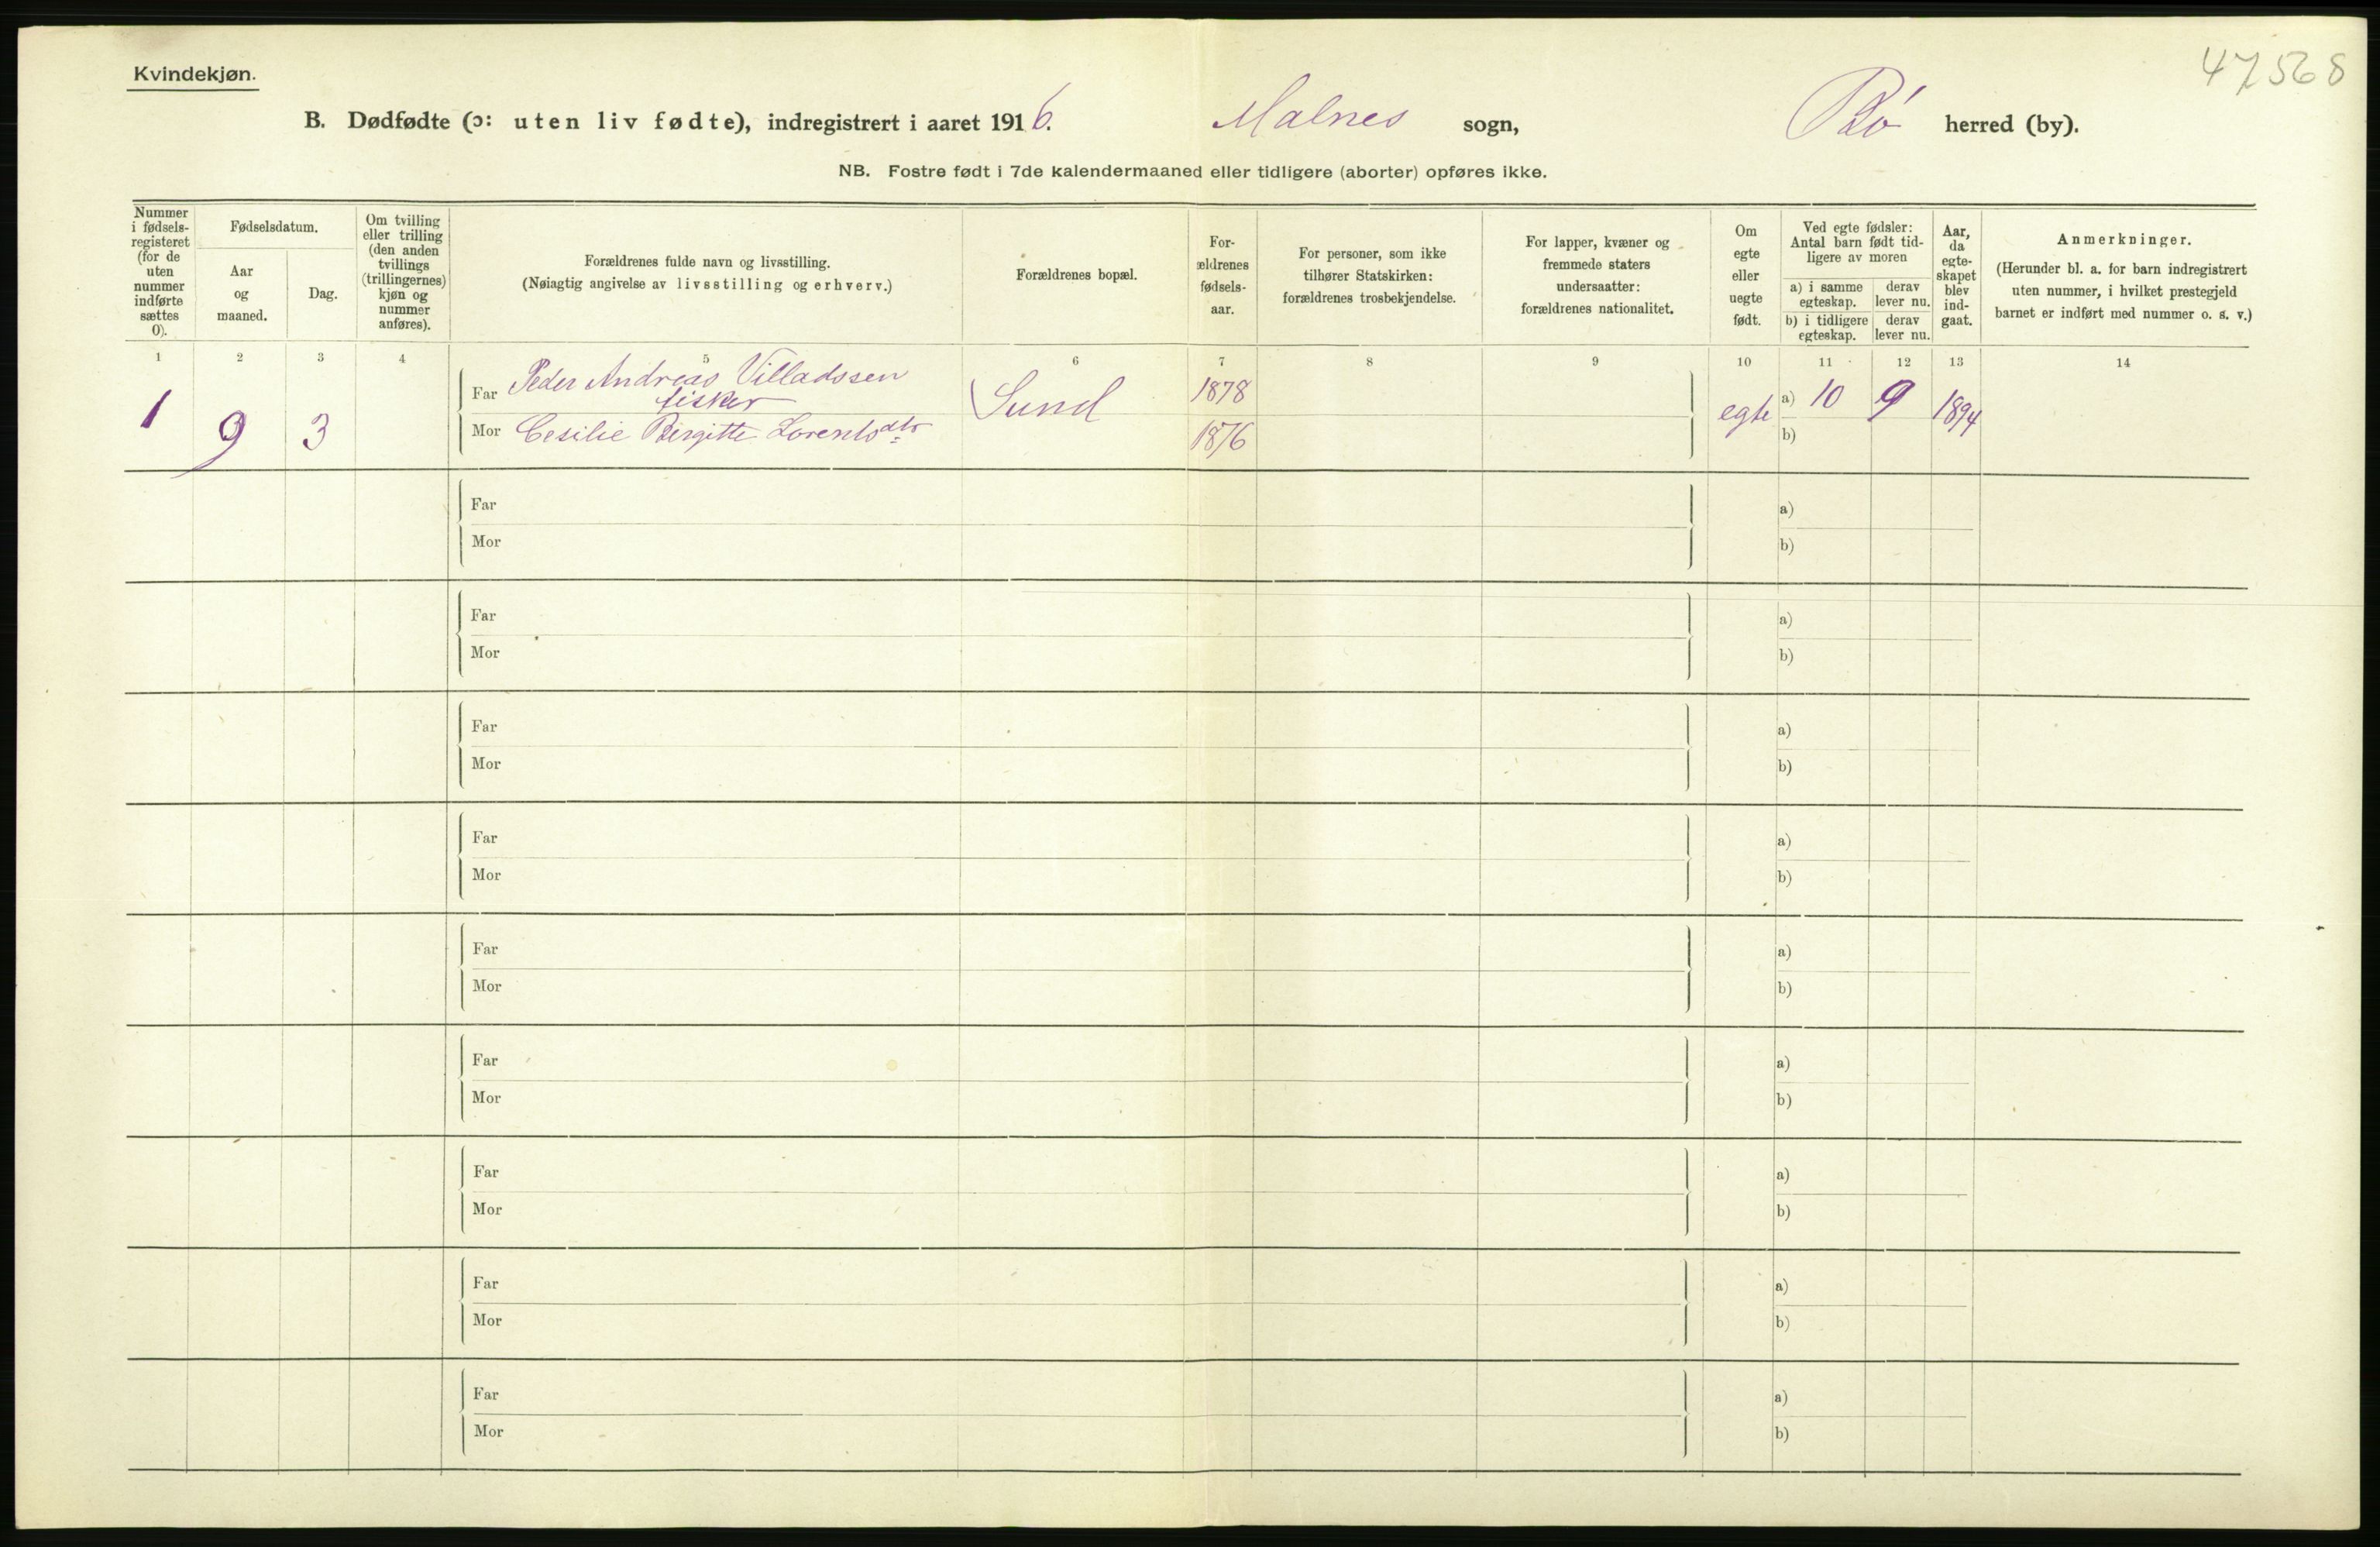 47568
Kvindekjøn.
B. Dødfødte (ɔ: uten liv fødte), indregistrert i aaret 1916. Malnes sogn, Bø herred (by).
NB. Fostre født i 7de kalendermaaned eller tidligere (aborter) opføres ikke.
Nummer
i fødsels-
registeret
(for de
uten
nummer
indførte
sættes
0).
Fødselsdatum.
Aar
og
maaned.
Dag.
Om tvilling
eller trilling
(den anden
tvillings
(trillingernes)
kjøn og
nummer
anføres).
Forældrenes fulde navn og livsstilling.
(Nøiagtig angivelse av livsstilling og erhverv.)
Forældrenes bopæl.
For-
ældrenes
fødsels-
aar.
For personer, som ikke
tilhører Statskirken:
forældrenes trosbekjendelse.
For lapper, kvæner og
fremmede staters
undersaatter:
forældrenes nationalitet.
Om
egte
eller
uegte
født.
Ved egte fødsler:
Antal barn født tid-
ligere av moren
a) i samme
egteskap.
derav
lever nu.
b) i tidligere
egteskap.
derav
lever nu.
Aar,
da
egte-
skapet
blev
ind-
gaat.
Anmerkninger.
(Herunder bl. a. for barn indregistrert
uten nummer, i hvilket prestegjeld
barnet er indført med nummer o. s. v.)
1 2 3 4 5 6 7 8 9 10 11 12 13 14
Far Peder Andreas Villadssen 1878 a) 10 9
fisker
1 9 3 Sund egte 1894
Mor Cesilie Birgitte Lorentsdtr 1876 b)
Far a)
Mor b)
Far a)
Mor b)
Far a)
Mor b)
Far a)
Mor b)
Far a)
Mor b)
Far a)
Mor b)
Far a)
Mor b)
Far a)
Mor b)
Far a)
Mor b)